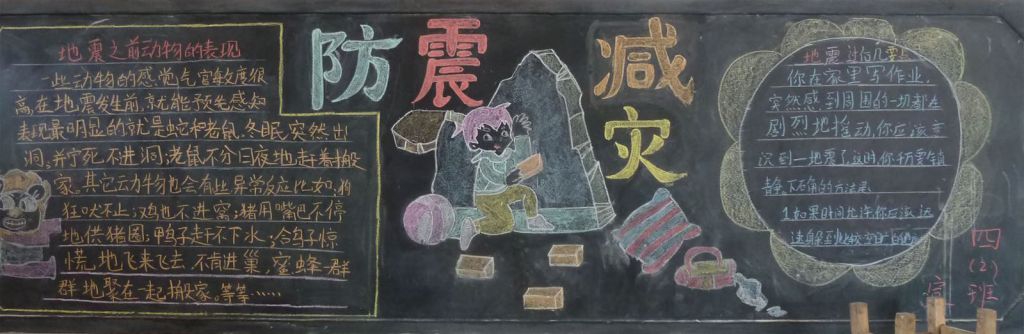 防震减灾
地震之前动物的表现
一些动物的感觉气官敏度很
高,在地震发生前,就能预先感知
表现最明显的就是蛇和老鼠,冬眠,突然出
洞,并宁死不进洞;老鼠不分日夜地赶着搬
家。其它动物也会有些异常反应比如,狗
狂吠不止;鸡也不进窝;猪用嘴巴不停
地供猪圈;鸭子赶不下水;鸽子惊
慌,地飞来飞去,不肯进巢,蜜蜂一群
群地聚在一起搬家。等等……
地震时的几要
你在家里写作业,
突然感到周围的一切都在
剧烈地摇动,你应该意
识到一地震了,这时,你
静下
1如果时间允许你应该迅
速躲到比较空旷的
四
(2)
班